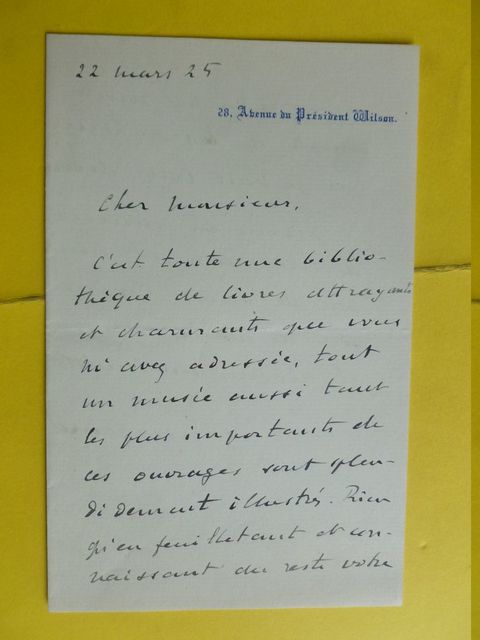 22 mars 25
28, Avenue du Président Wilson.
Cher Monsieur,
C'est toute une biblio-
thèque de livres attrayants
et charmants que vous
m'avez adressée, tout
un musée aussi tant
les plus importants de
ces ouvrages sont splen-
didement illustrés. Rien
qu'en feuilletant et con-
naissant du reste votre